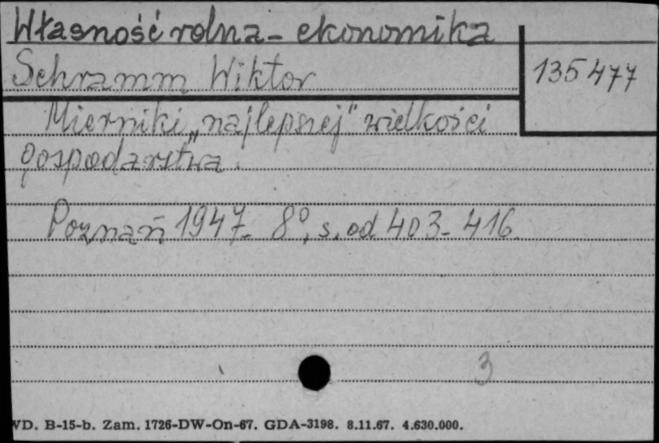 Własność rolna - ekonomika
Schramm Wiktor
135477
Mierniki „najlepszej" wielkości
gospodarstwa.
Poznań 1947. 8°, s. od 403-416.
3
VD. B-15-b. Zam. 1726-DW-On-67. GDA-3198. 8.11.67. 4.630.000.